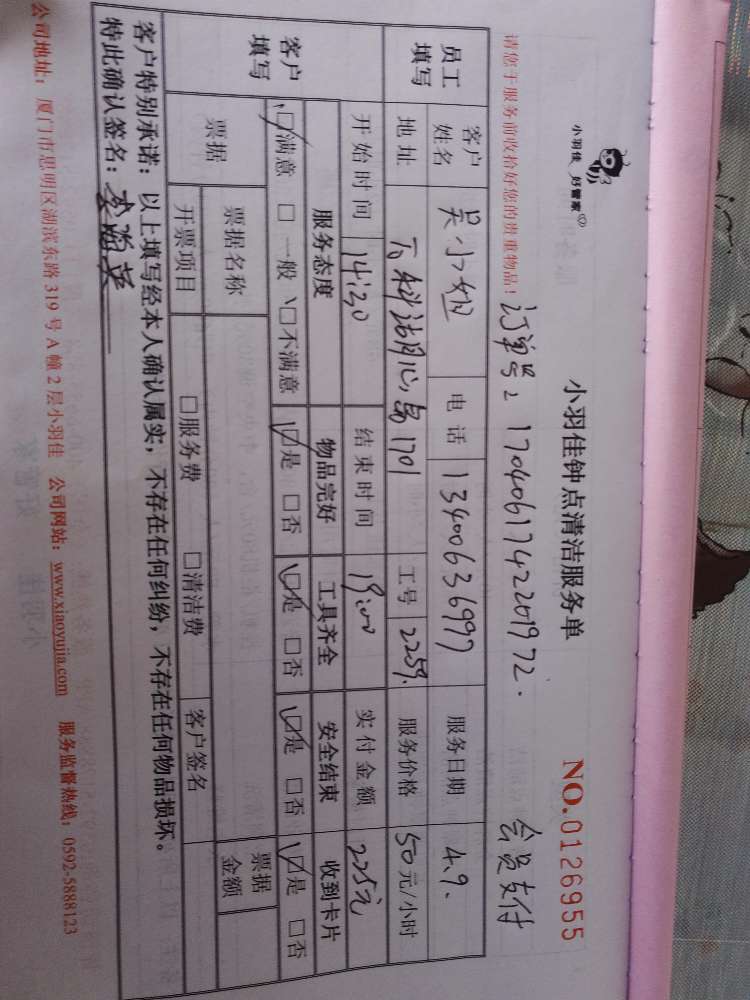 小羽佳 好管家
小羽佳钟点清洁服务单
NO.0126955
请您于服务前收拾好您的贵重物品！
订单号: 1704061742201972.
会员支付
员工填写
客户姓名 吴小姐 电话 13400636997 服务日期 4.9.
地址 1701 工号 2259. 服务价格 50元/小时
客户填写
开始时间 14:30 结束时间 19:00 实付金额 225元
服务态度 物品完好 工具齐全 安全结束 收到卡片
☑满意 □一般 □不满意 ☑是 □否 ☑是 □否 ☑是 □否 ☑是 □否
票据 票据名称 票据金额
开票项目 □服务费 □清洁费 客户签名
客户特别承诺：以上填写经本人确认属实，不存在任何纠纷，不存在任何物品损坏。
特此确认签名：
公司地址：厦门市思明区湖滨东路 319 号 A 幢 2 层小羽佳 公司网站：www.xiaoyujia.com 服务监督热线：0592-5888123